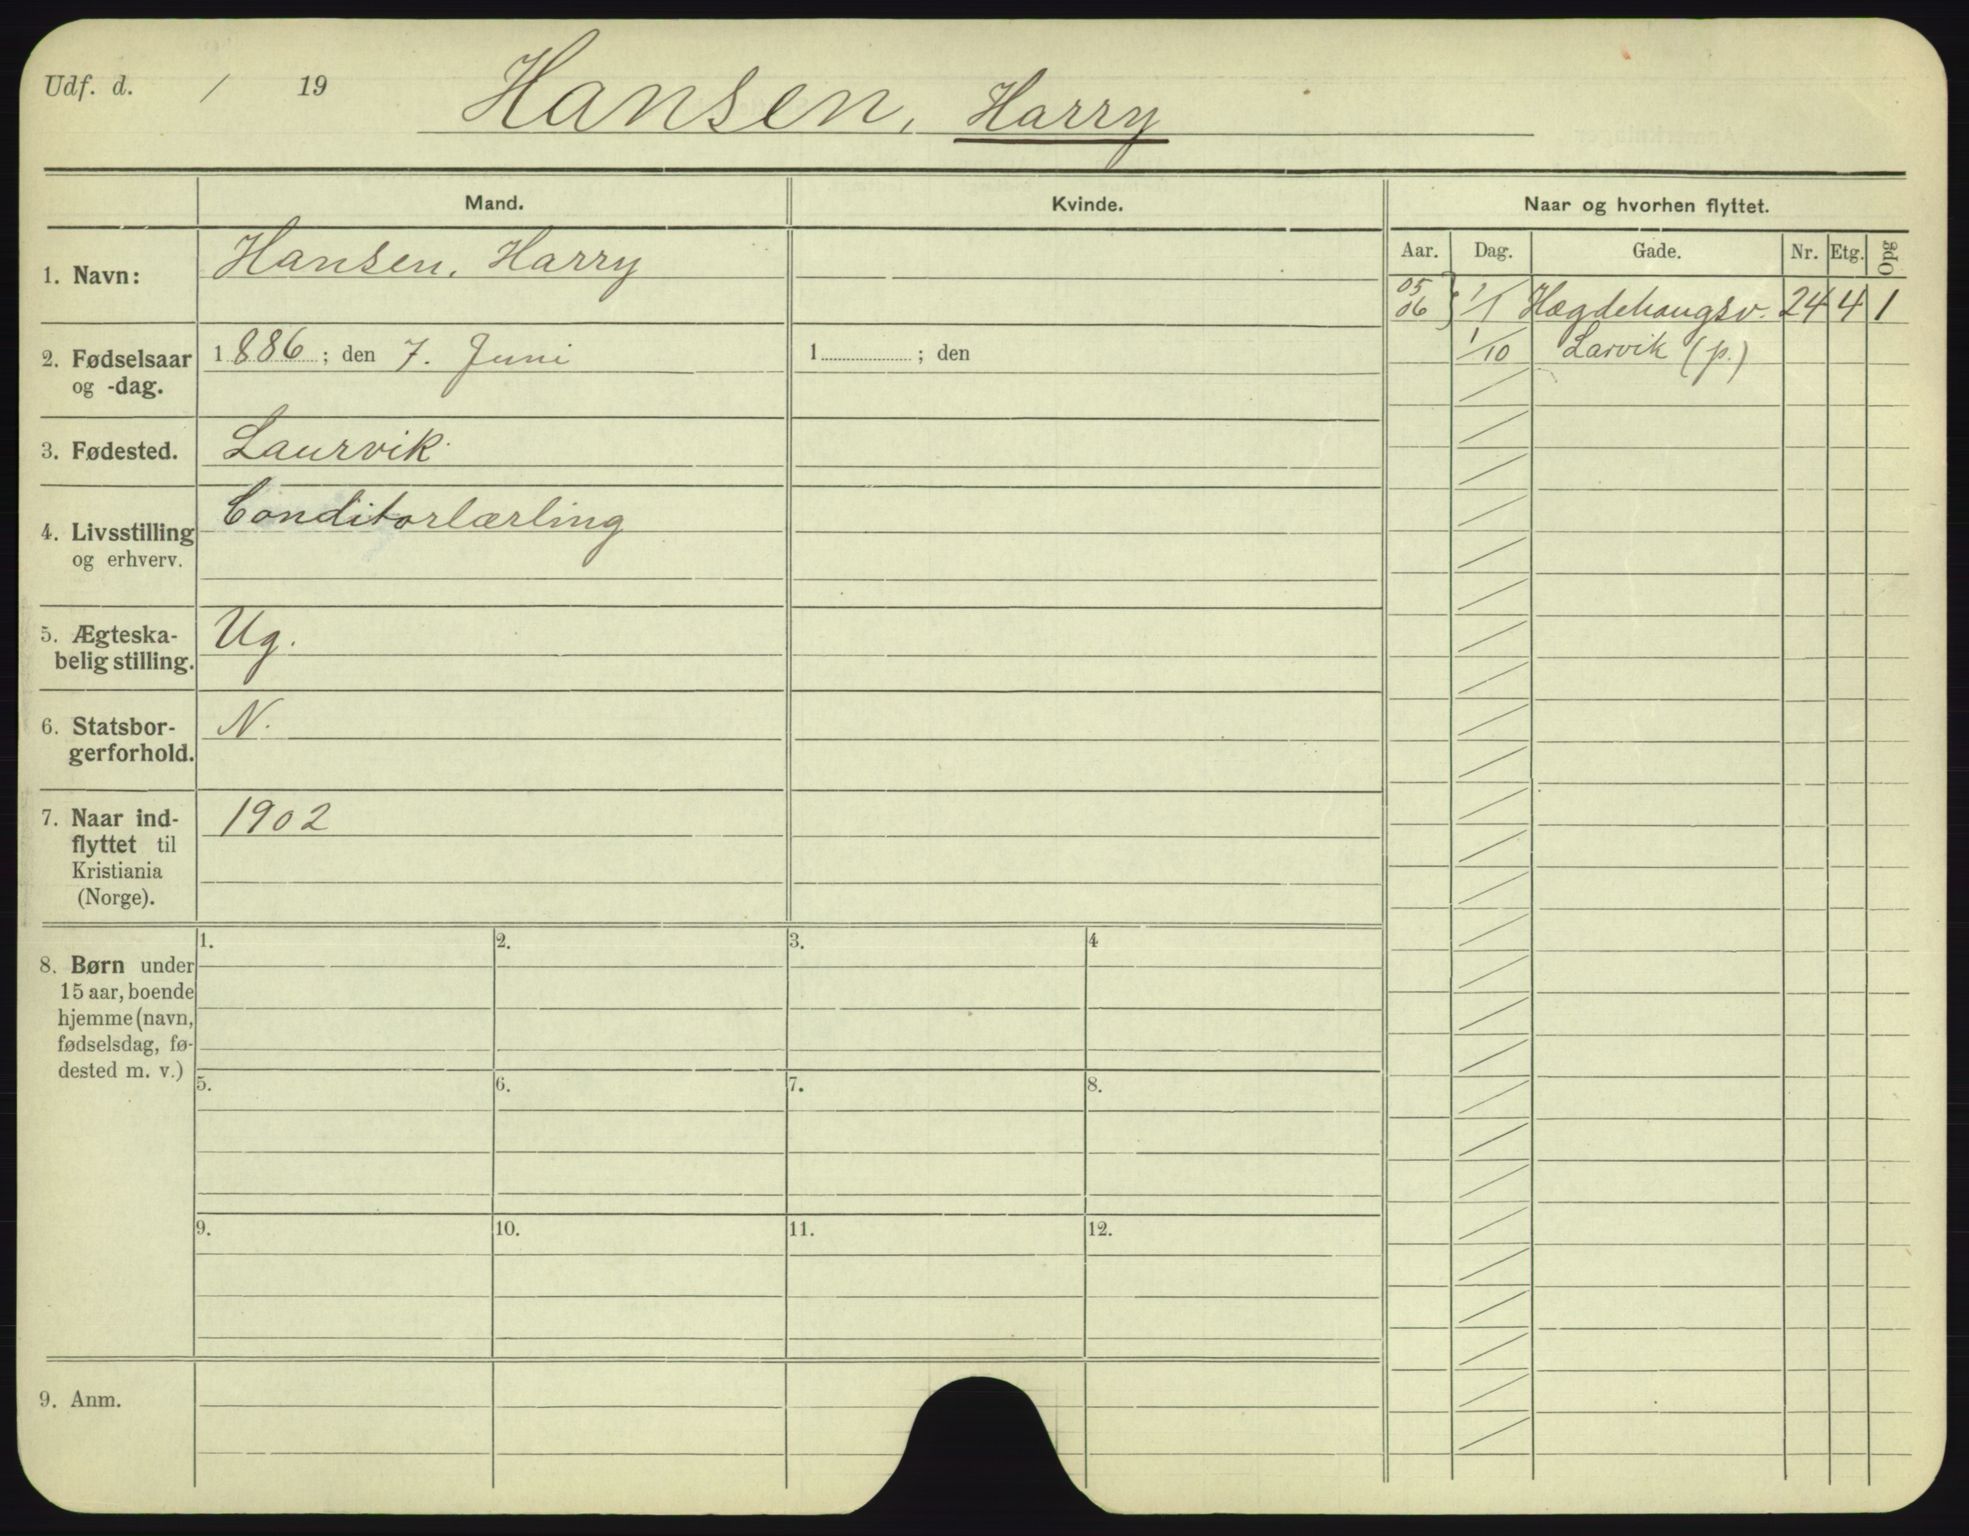 Udf. d. / 19
Hansen, Harry
Mand.
Kvinde.
Naar og hvorhen flyttet.
Aar. Dag. Gade. Nr. Etg. Opg
1. Navn:
Hansen, Harry
05
06 } 1/1 Hægdehaugsv. 24 4 1
1/10 Larvik (p.)
2. Fødselsaar
og -dag.
1886; den 7. Juni
1 ; den
3. Fødested.
Laurvik
4. Livsstilling
og erhverv.
Conditorlærling
5. Ægteska-
belig stilling.
Ug.
6. Statsbor-
gerforhold.
N.
7. Naar ind-
flyttet til
Kristiania
(Norge).
1902
8. Børn under
15 aar, boende
hjemme (navn,
fødselsdag, fø-
dested m. v.)
1. 2. 3. 4
5. 6. 7. 8.
9. 10. 11. 12.
9. Anm.